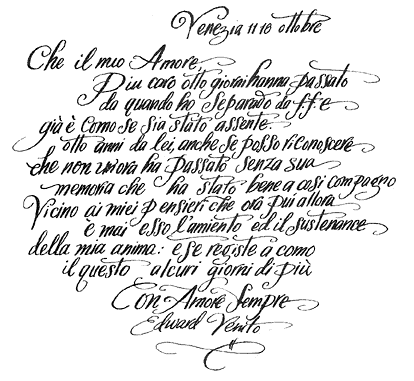 Venezia 11 18 ottobre
Che il mio Amore,
Piu caro otto giorni hanna passato
da quando ho separado da ffe
già è como se sia stato assente.
otto anni da lei, anche se posso riconoscere
che non un ora ha passato senza sua
memoria che ha stato bene a casi compagno
Vicino ai miei pensieri che ora pui allora
è mai esso l'amiento ed il sustenance
della mia anima: e se registe a como
il questo alcuri giorni di più
Con Amore Sempre
Edward Venito